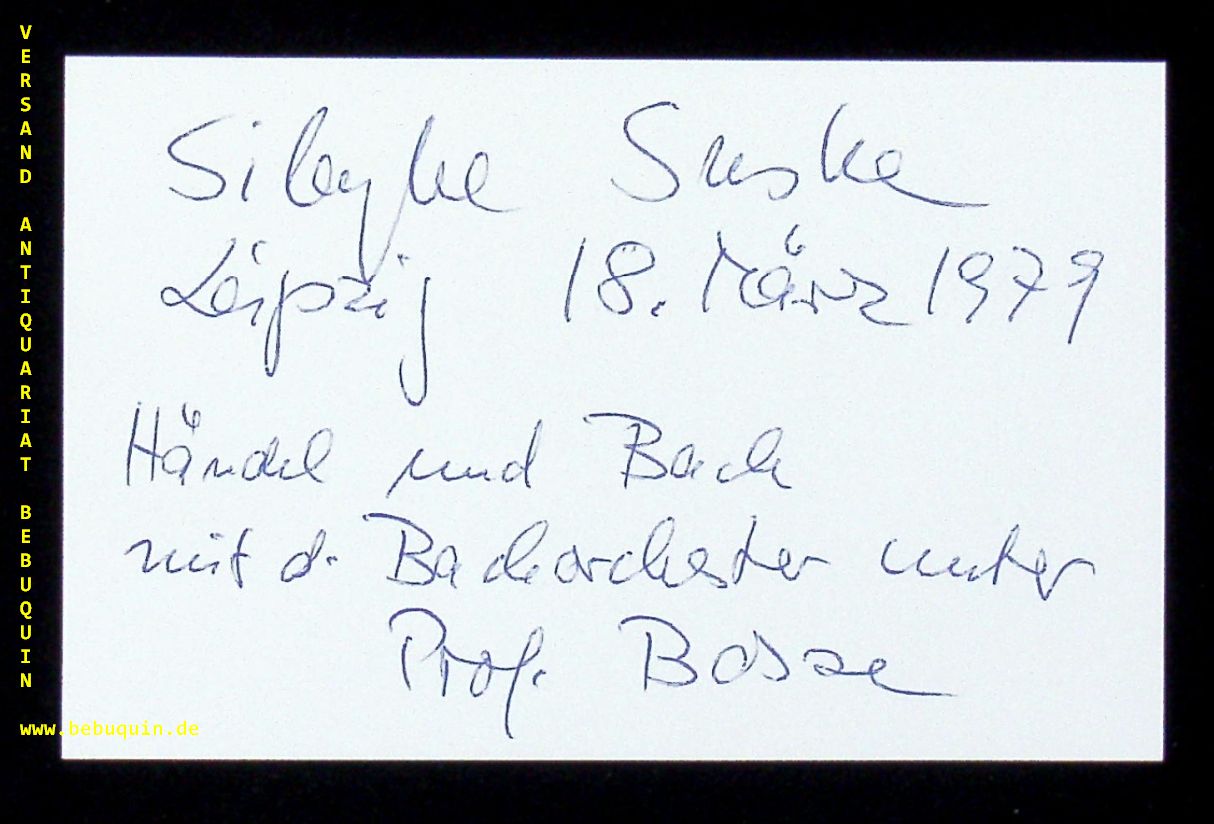 VERSAND ANTIQUARIAT BEBUQUIN
Sibylle Suske
Leipzig 18. März 1979
Händel und Bach
mit d. Bachorchester unter
Prof. Bosse
www.bebuquin.de